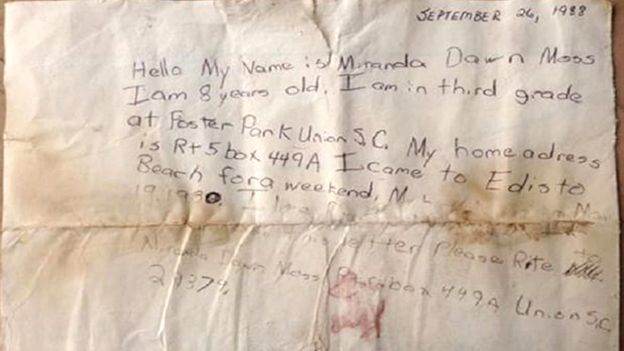 SEPTEMBER 26, 1988
Hello My Name is Miranda Dawn Moss
I am 8 years old. I am in third grade
at Foster Park Union S.C. My home adress
is Rt 5 box 449A I came to Edisto
Beach for a weekend,
19, 1980
letter please Rite
Miranda Dawn Moss box 449A Union S.C.
29379,